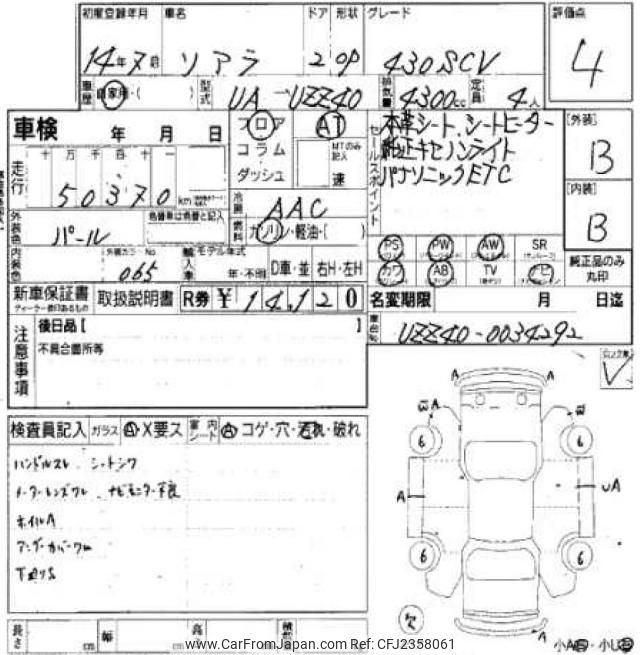 初度登録年月 車名 ドア 形状 グレード 評価点
14年7月 ソアラ 2 OP 430SCV 4
車歴 自家用・( ) 型式 UA-UZZ40 排気量 4300cc 定員 4人
車検 年 月 日 フロア AT 本革シート、シートヒーター [外装]
コラム MTのみ記入 純正キセノンライト B
走行 十 万 千 百 十 一 ダッシュ 速 セールスポイント パナソニックETC
50370 km 冷房 AAC [内装]
外装色 パール 色替車は色替と記入 燃料 ガソリン・軽油・( ) B
PS PW AW SR 純正品のみ
内装色 外装カラーNo. 065 輸入車 モデル年式 年・不明 D車・並 右H・左H カワ AB TV ナビ 丸印
新車保証書 取扱説明書 R券 ¥ 14,120 名変期限 月 日迄
ディーラー捺印あるもの
注意事項 後日品 [ ] 車台No. UZZ40-0034292
不具合箇所等
検査員記入 ガラス A・X要ス 室内シート A・コゲ・穴・破れ
ハンドルスレ シートシワ
ナビモニター不良
ホイルA
長さ cm 幅 cm 高
A A
A
6 6
A UA
6 6
欠 A
www.CarFromJapan.com Ref: CFJ2358061